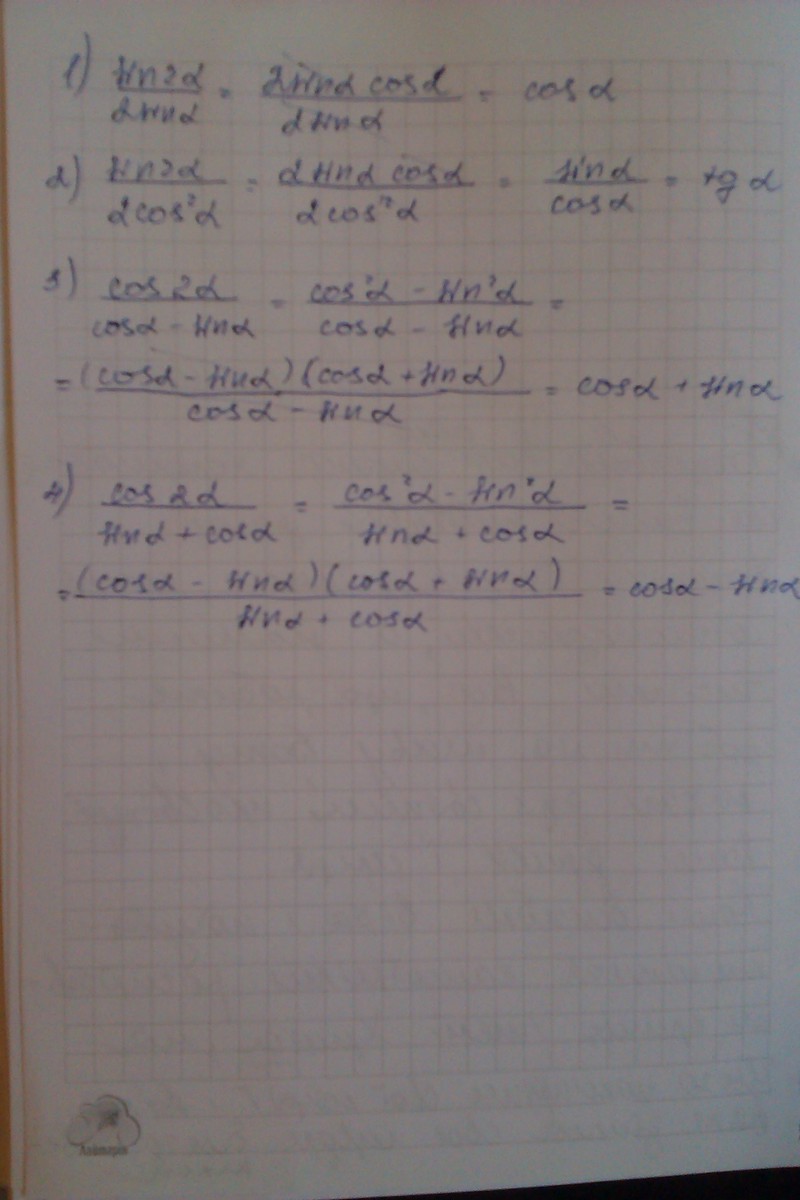 1) sin2α / 2sinα = 2sinα cosα / 2sinα = cosα
2) sin2α / 2cos²α = 2sinα cosα / 2cos²α = sinα / cosα = tgα
3) cos2α / cosα - sinα = cos²α - sin²α / cosα - sinα =
= (cosα - sinα)(cosα + sinα) / cosα - sinα = cosα + sinα
4) cos2α / sinα + cosα = cos²α - sin²α / sinα + cosα =
= (cosα - sinα)(cosα + sinα) / sinα + cosα = cosα - sinα